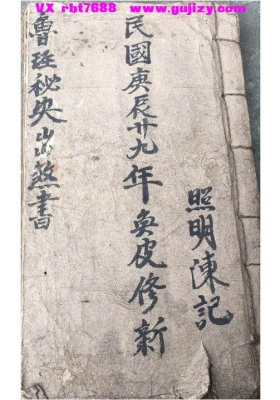 VX rbt7688 www.gujizy.com
魯班秘央出煞書
民國庚辰廿九年奐皮修新
照明陳記